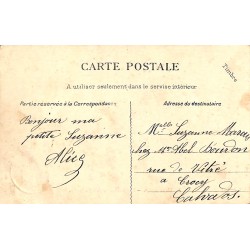 CARTE POSTALE
A utiliser seulement dans le service intérieur
Timbre
Partie réservée à la Correspondance
Adresse du destinataire
Bonjour ma
petite Suzanne
Alice
Melle Suzanne
chez Mr Abel Bourdon
rue de Vitré
a Crocy
Calvados